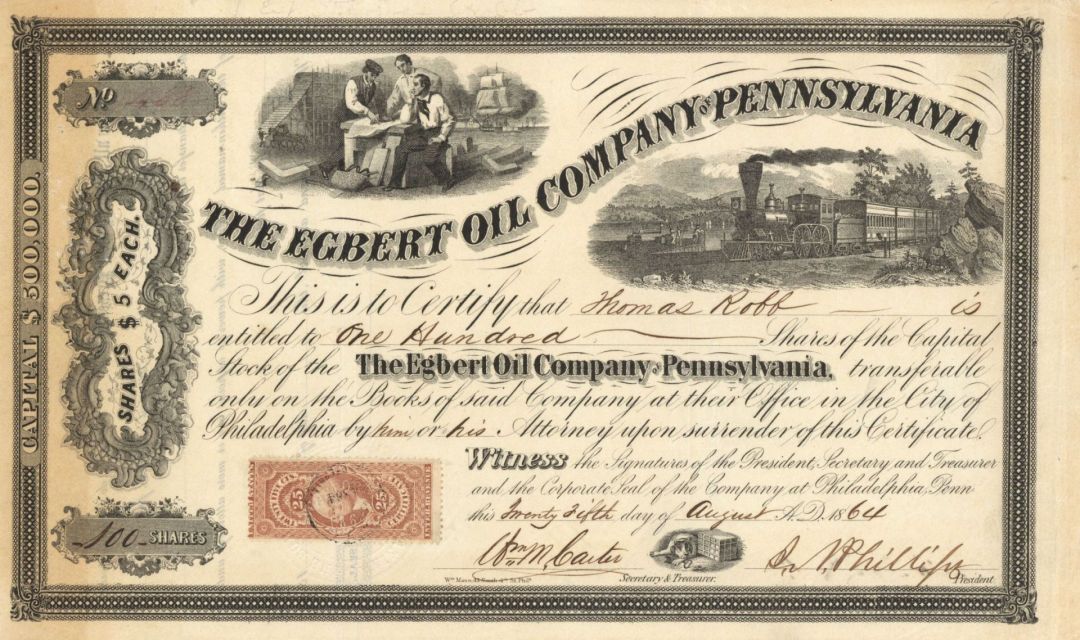 Nº
CAPITAL $500,000.
SHARES $5 EACH.
100 SHARES
THE EGBERT OIL COMPANY OF PENNSYLVANIA
This is to Certify that Thomas Robb is
entitled to One Hundred Shares of the Capital
Stock of the The Egbert Oil Company of Pennsylvania, transferable
only on the Books of said Company at their Office in the City of
Philadelphia by him or his Attorney upon surrender of this Certificate.
Witness the Signatures of the President, Secretary and Treasurer
and the Corporate Seal of the Company at Philadelphia, Penn
this Twenty Fifth day of August A.D. 1864
25 25
Wm M. Carter
Phillips
Secretary & Treasurer.
President